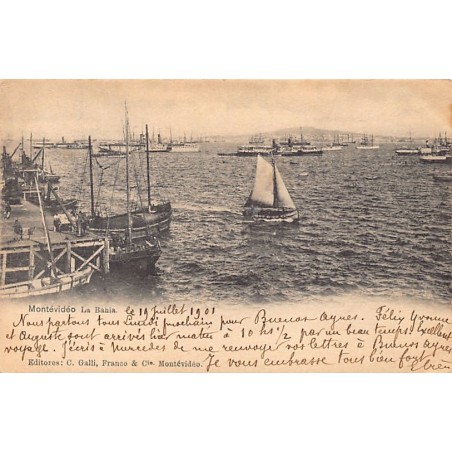 Montévidéo La Bahia. le 19 juillet 1901
Nous partons tous Lundi prochain pour Buenos Ayres. Félix Yvonne
et Auguste sont arrivés hier matin à 10 hrs ½ par un beau temps. Excellent
voyage. J'écris à de me renvoyer vos lettres à Buenos Ayres
Editores: C. Galli, Franco & Cia. Montévidéo. Je vous embrasse tous bien fort